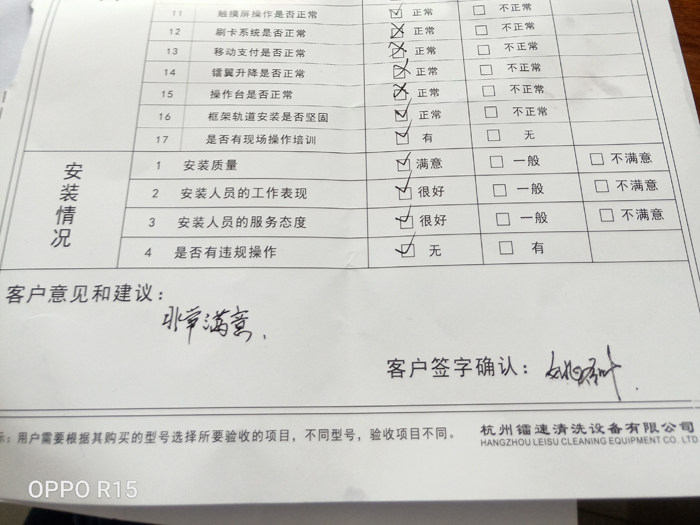 11 触摸屏操作是否正常 正常 不正常
12 刷卡系统是否正常 正常 不正常
13 移动支付是否正常 正常 不正常
14 镭翼升降是否正常 正常 不正常
15 操作台是否正常 正常 不正常
16 框架轨道安装是否坚固 正常 不正常
17 是否有现场操作培训 有 无
安装情况
1 安装质量 满意 一般 不满意
2 安装人员的工作表现 很好 一般 不满意
3 安装人员的服务态度 很好 一般 不满意
4 是否有违规操作 无 有
客户意见和建议：
非常满意.
客户签字确认：
示：用户需要根据其购买的型号选择所要验收的项目，不同型号，验收项目不同。
杭州镭速清洗设备有限公司
HANGZHOU LEISU CLEANING EQUIPMENT CO. LTD
OPPO R15